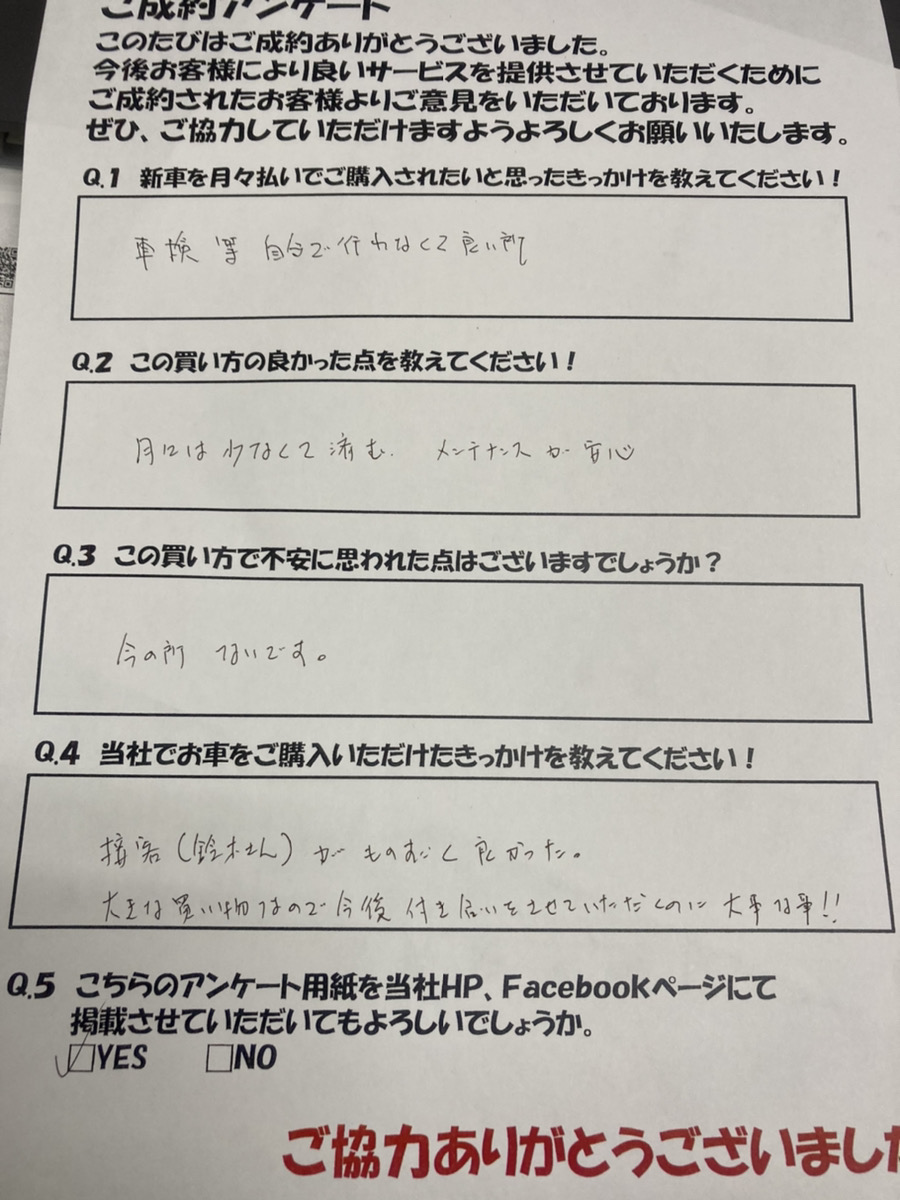 ご成約アンケート
このたびはご成約ありがとうございました。
今後お客様により良いサービスを提供させていただくために
ご成約されたお客様よりご意見をいただいております。
ぜひ、ご協力していただけますようよろしくお願いいたします。
Q.1 新車を月々払いでご購入されたいと思ったきっかけを教えてください!
車検 等 自分で行わなくて良い所
Q.2 この買い方の良かった点を教えてください!
月々は少なくて済む. メンテナンスが安心
Q.3 この買い方で不安に思われた点はございますでしょうか?
今の所 ないです。
Q.4 当社でお車をご購入いただけたきっかけを教えてください!
接客(鈴木さん)がものすごく良かった。
大きな買い物なので今後付き合いをさせていただくのに大事な事!!
Q.5 こちらのアンケート用紙を当社HP、Facebookページにて
掲載させていただいてもよろしいでしょうか。
YES NO
ご協力ありがとうございました